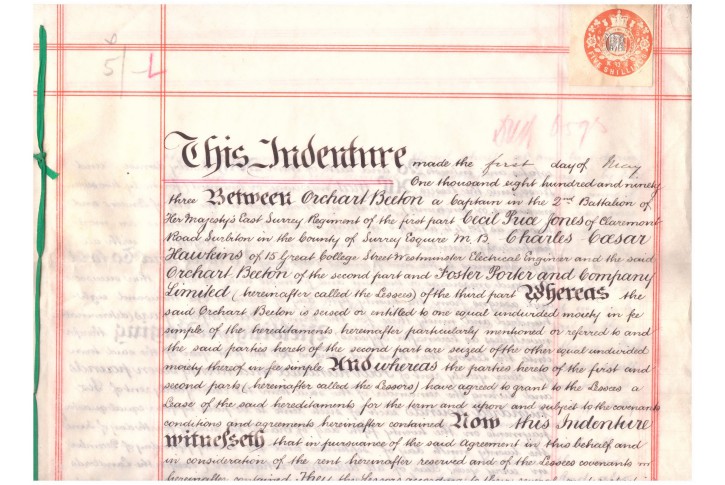 5/-L
FIVE SHILLINGS
This Indenture made the first day of May
One thousand eight hundred and ninety
three Between Orchart Beeton a Captain in the 2nd Battalion of
Her Majesty's East Surrey Regiment of the first part Cecil Price Jones of Claremont
Road Surbiton in the County of Surrey Esquire M.B. Charles Cæsar
Hawkins of 15 Great College Street Westminster Electrical Engineer and the said
Orchart Beeton of the second part and Foster Porter and Company
Limited (hereinafter called the Lessees) of the third part Whereas the
said Orchart Beeton is seised or entitled to one equal undivided moiety in fee
simple of the hereditaments hereinafter particularly mentioned or referred to and
the said parties hereto of the second part are seized of the other equal undivided
moiety thereof in fee simple And whereas the parties hereto of the first and
second parts (hereinafter called the Lessors) have agreed to grant to the Lessees a
Lease of the said hereditaments for the term and upon and subject to the covenants
conditions and agreements hereinafter contained Now this Indenture
witnesseth that in pursuance of the said Agreement in this behalf and
in consideration of the rent hereinafter reserved and of the Lessees covenants
hereinafter contained They the Lessors according to their several